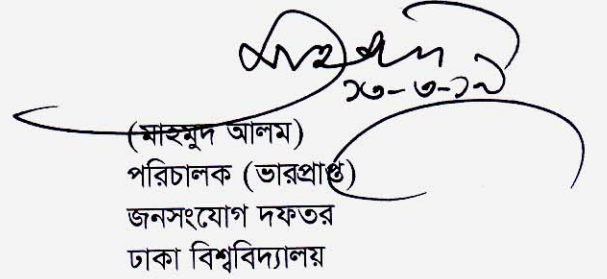 ১৩-৩-১৯
(মাহমুদ আলম)
পরিচালক (ভারপ্রাপ্ত)
জনসংযোগ দফতর
ঢাকা বিশ্ববিদ্যালয়